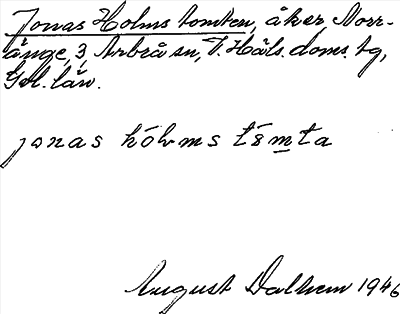 Jonas Holms tomten, åker, Norr-
änge, 3, Arbrå sn, V. Häls. doms. tg,
Gvl. län.
jonas hólvms tômta
August Dalhem 1946